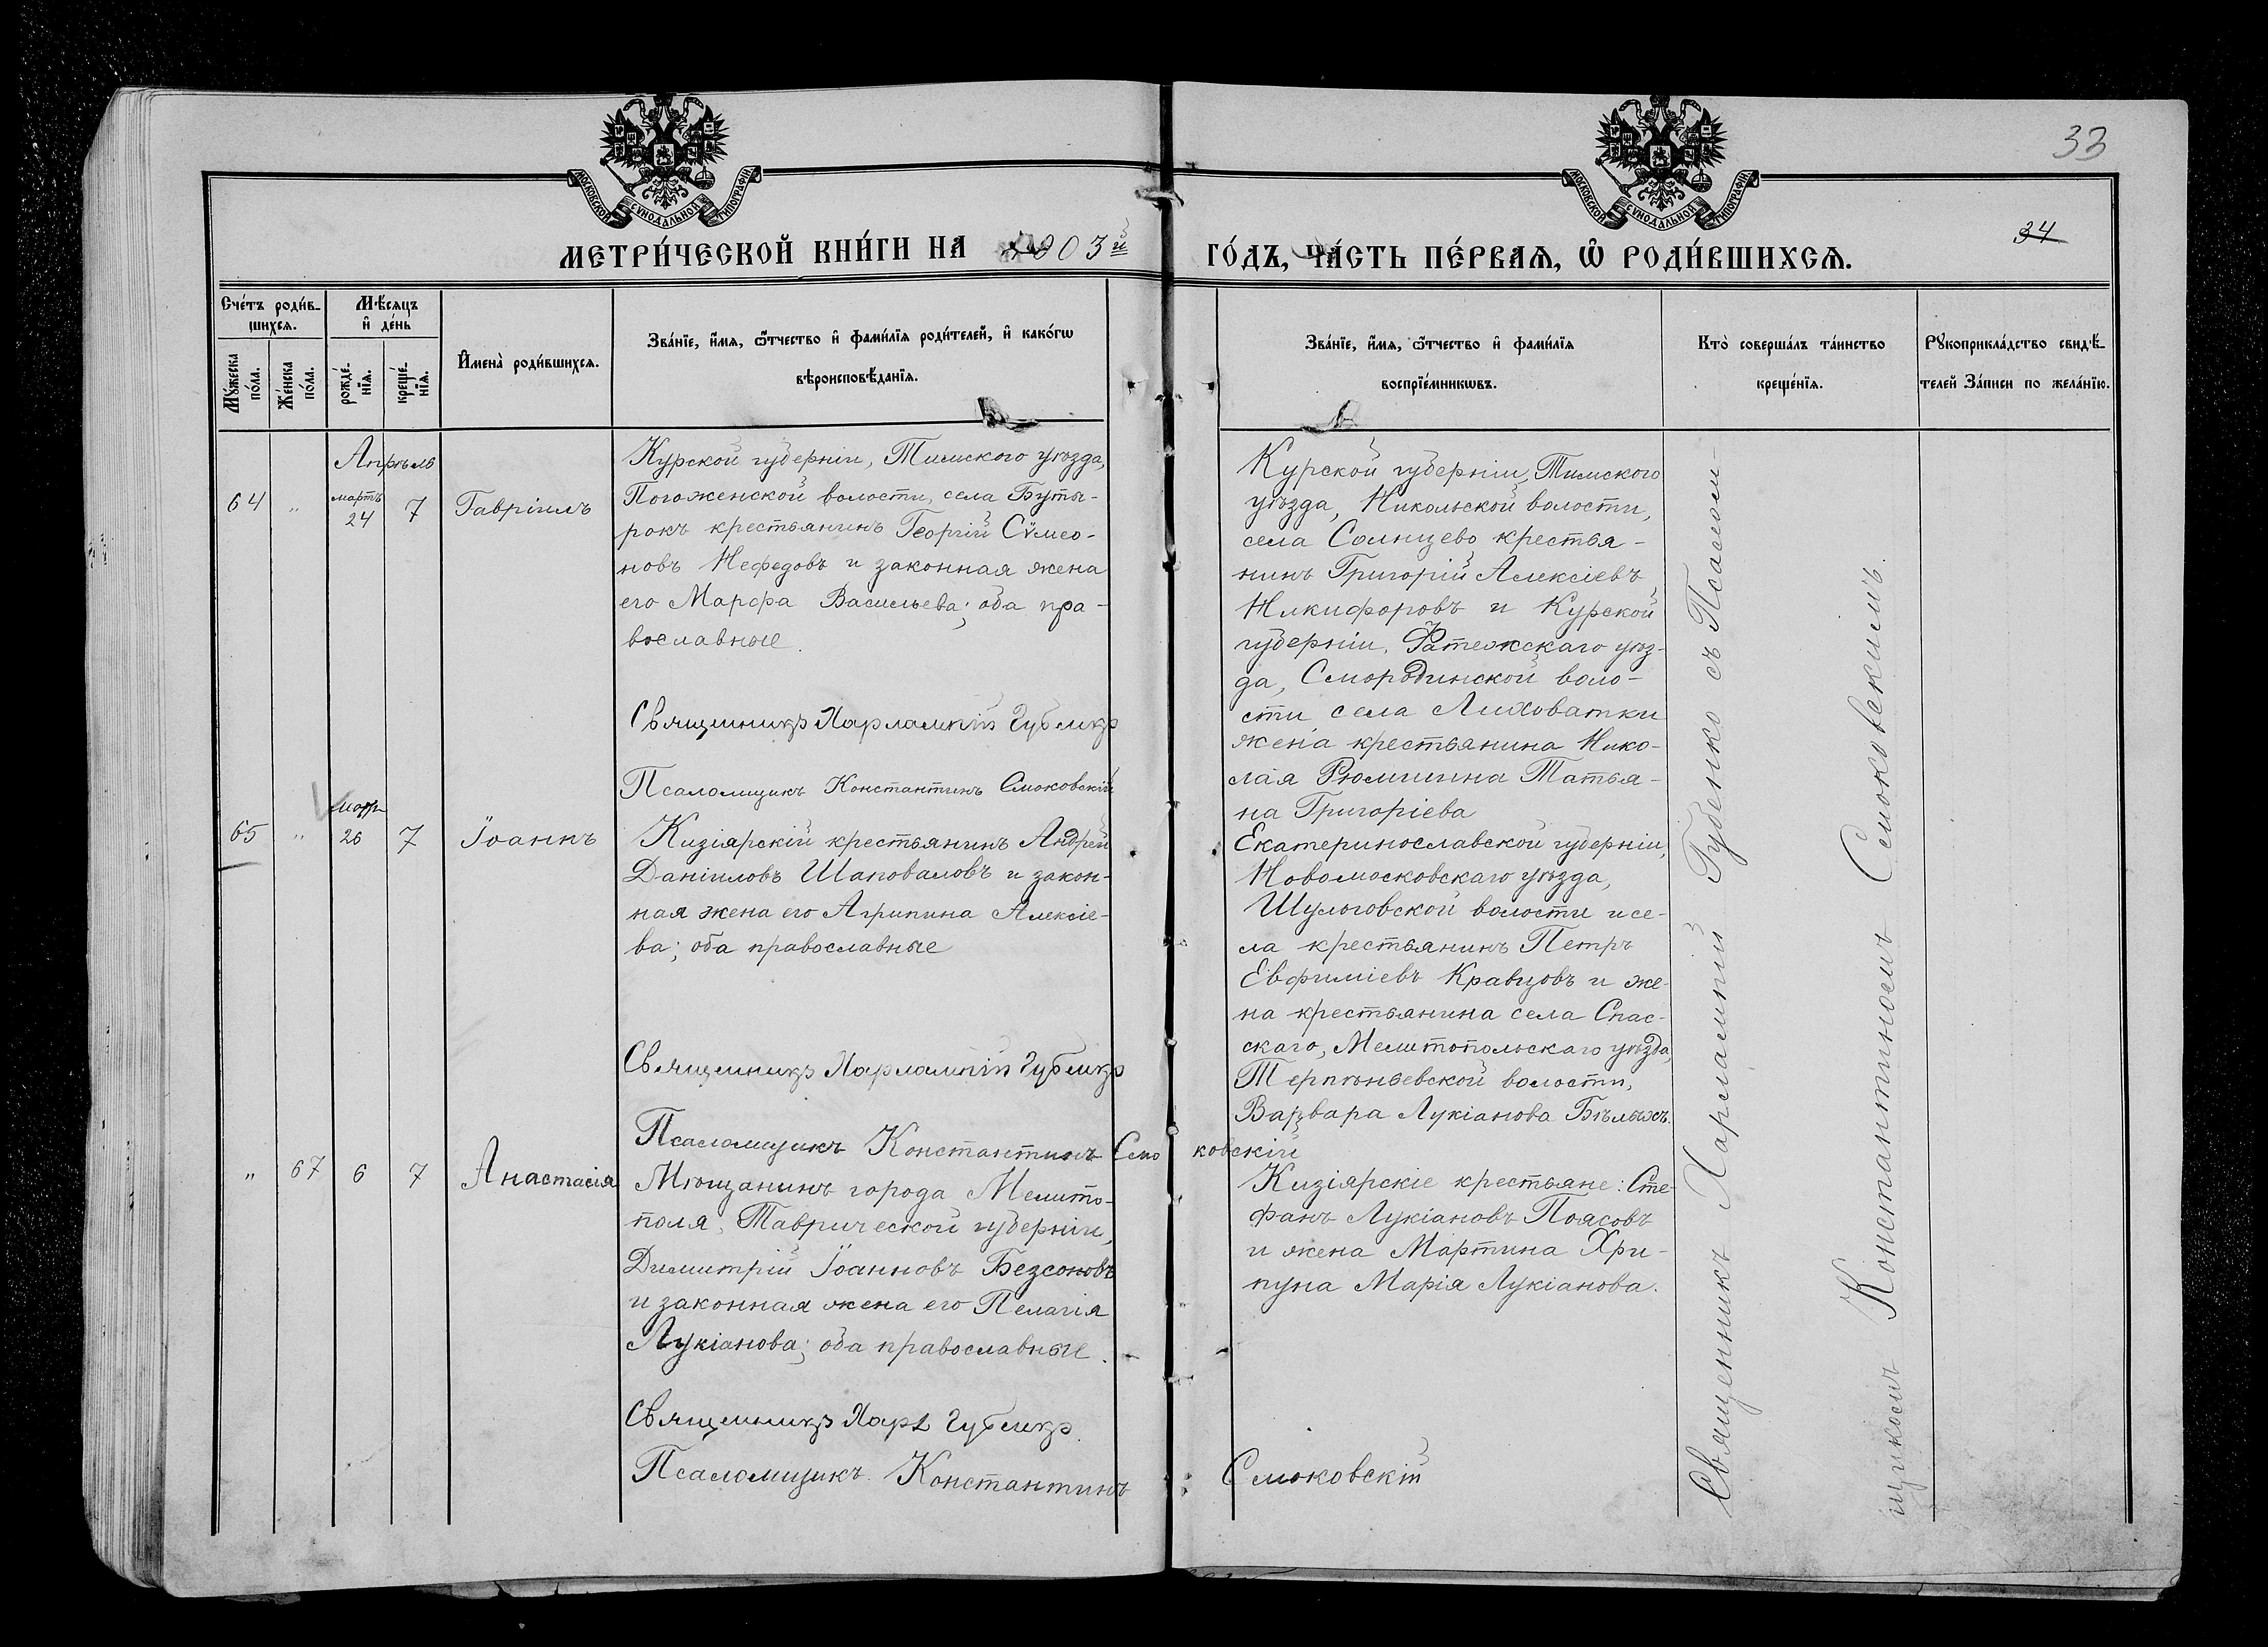 33
34
МОСКОВСКОЙ СѴНОДАЛЬНОЙ ТИПОГРАФІИ
МОСКОВСКОЙ СѴНОДАЛЬНОЙ ТИПОГРАФІИ
МЕТРИ́ЧЕСКОЙ КНИ́ГИ НА 903й ГО́ДЪ, ЧА́СТЬ ПЕ́РВАѦ, Ѡ҆ РОДИ́ВШИХСѦ.
Сче́тъ роди́в-
шихсѧ.
Мѣ́сѧцъ
и҆ де́нь
Мꙋ́жеска
по́ла.
Же́нска
по́ла.
рожде́-
нїѧ.
креще́-
нїѧ.
И҆мена̀ роди́вшихсѧ.
Зва́нїе, и҆́мѧ, ѻ҆́тчество и҆ фами́лїѧ роди́телей, и҆ како́гѡ
вѣроисповѣ́данїѧ.
Зва́нїе, и҆́мѧ, ѻ҆́тчество и҆ фами́лїѧ
воспрїе́мникѡвъ.
Кто̀ соверша́лъ та́инство
креще́нїѧ.
Рꙋкоприкла́дство свидѣ́-
телей За́писи по жела́нїю.
Апрѣль
64 " мартъ 24 7 Гавріилъ
Курской губерніи, Тимского уѣзда,
Погоженской волости, села Буты-
рокъ крестьянинъ Георгій Сѵмео-
новъ Нефедовъ и законная жена
его Марфа Васильева; оба пра-
вославные.
Священникъ Харлампій Губенко
Псаломщикъ Константинъ Смоковскій
Курской губерніи, Тимского
уѣзда, Никольской волости,
села Солнцево крестья-
нинъ Григорій Алексіевъ
Никифоровъ и Курской
губерніи, Фатежскаго уѣз-
да, Смородинской воло-
сти села Лиховатки
жена крестьянина Нико-
лая Рюмшина Татья-
на Григоріева
65 " марта 26 7 Іоаннъ
Кизіярскій крестьянинъ Андрей
Даніиловъ Шаповаловъ и закон-
ная жена его Агрипина Алексіе-
ва; оба православные
Священникъ Харлампій Губенко
Псаломщикъ Константинъ Смоковскій
Екатеринославской губерніи,
Новомосковскаго уѣзда,
Шульговской волости и се-
ла крестьянинъ Петръ
Евфиміевъ Кравцовъ и же-
на крестьянина села Спас-
скаго, Мелитопольскаго уѣзда,
Терпѣньевской волости,
Варвара Лукіанова Бѣлыхъ.
" 67 6 7 Анастасія
Мѣщанинъ города Мелито-
поля, Таврической губерніи,
Димитрій Іоанновъ Безсоновъ
и законная жена его Пелагія
Лукіанова; оба православные.
Священникъ Харл Губенко.
Псаломщикъ Константинъ Смоковскій
Кизіярскіе крестьяне: Сте-
фанъ Лукіановъ Поясовъ
и жена Мартина Хри-
пуна Марія Лукіанова.
Священникъ Харлампій Губенко съ Псалом-
щикомъ Константиномъ Смоковскимъ.